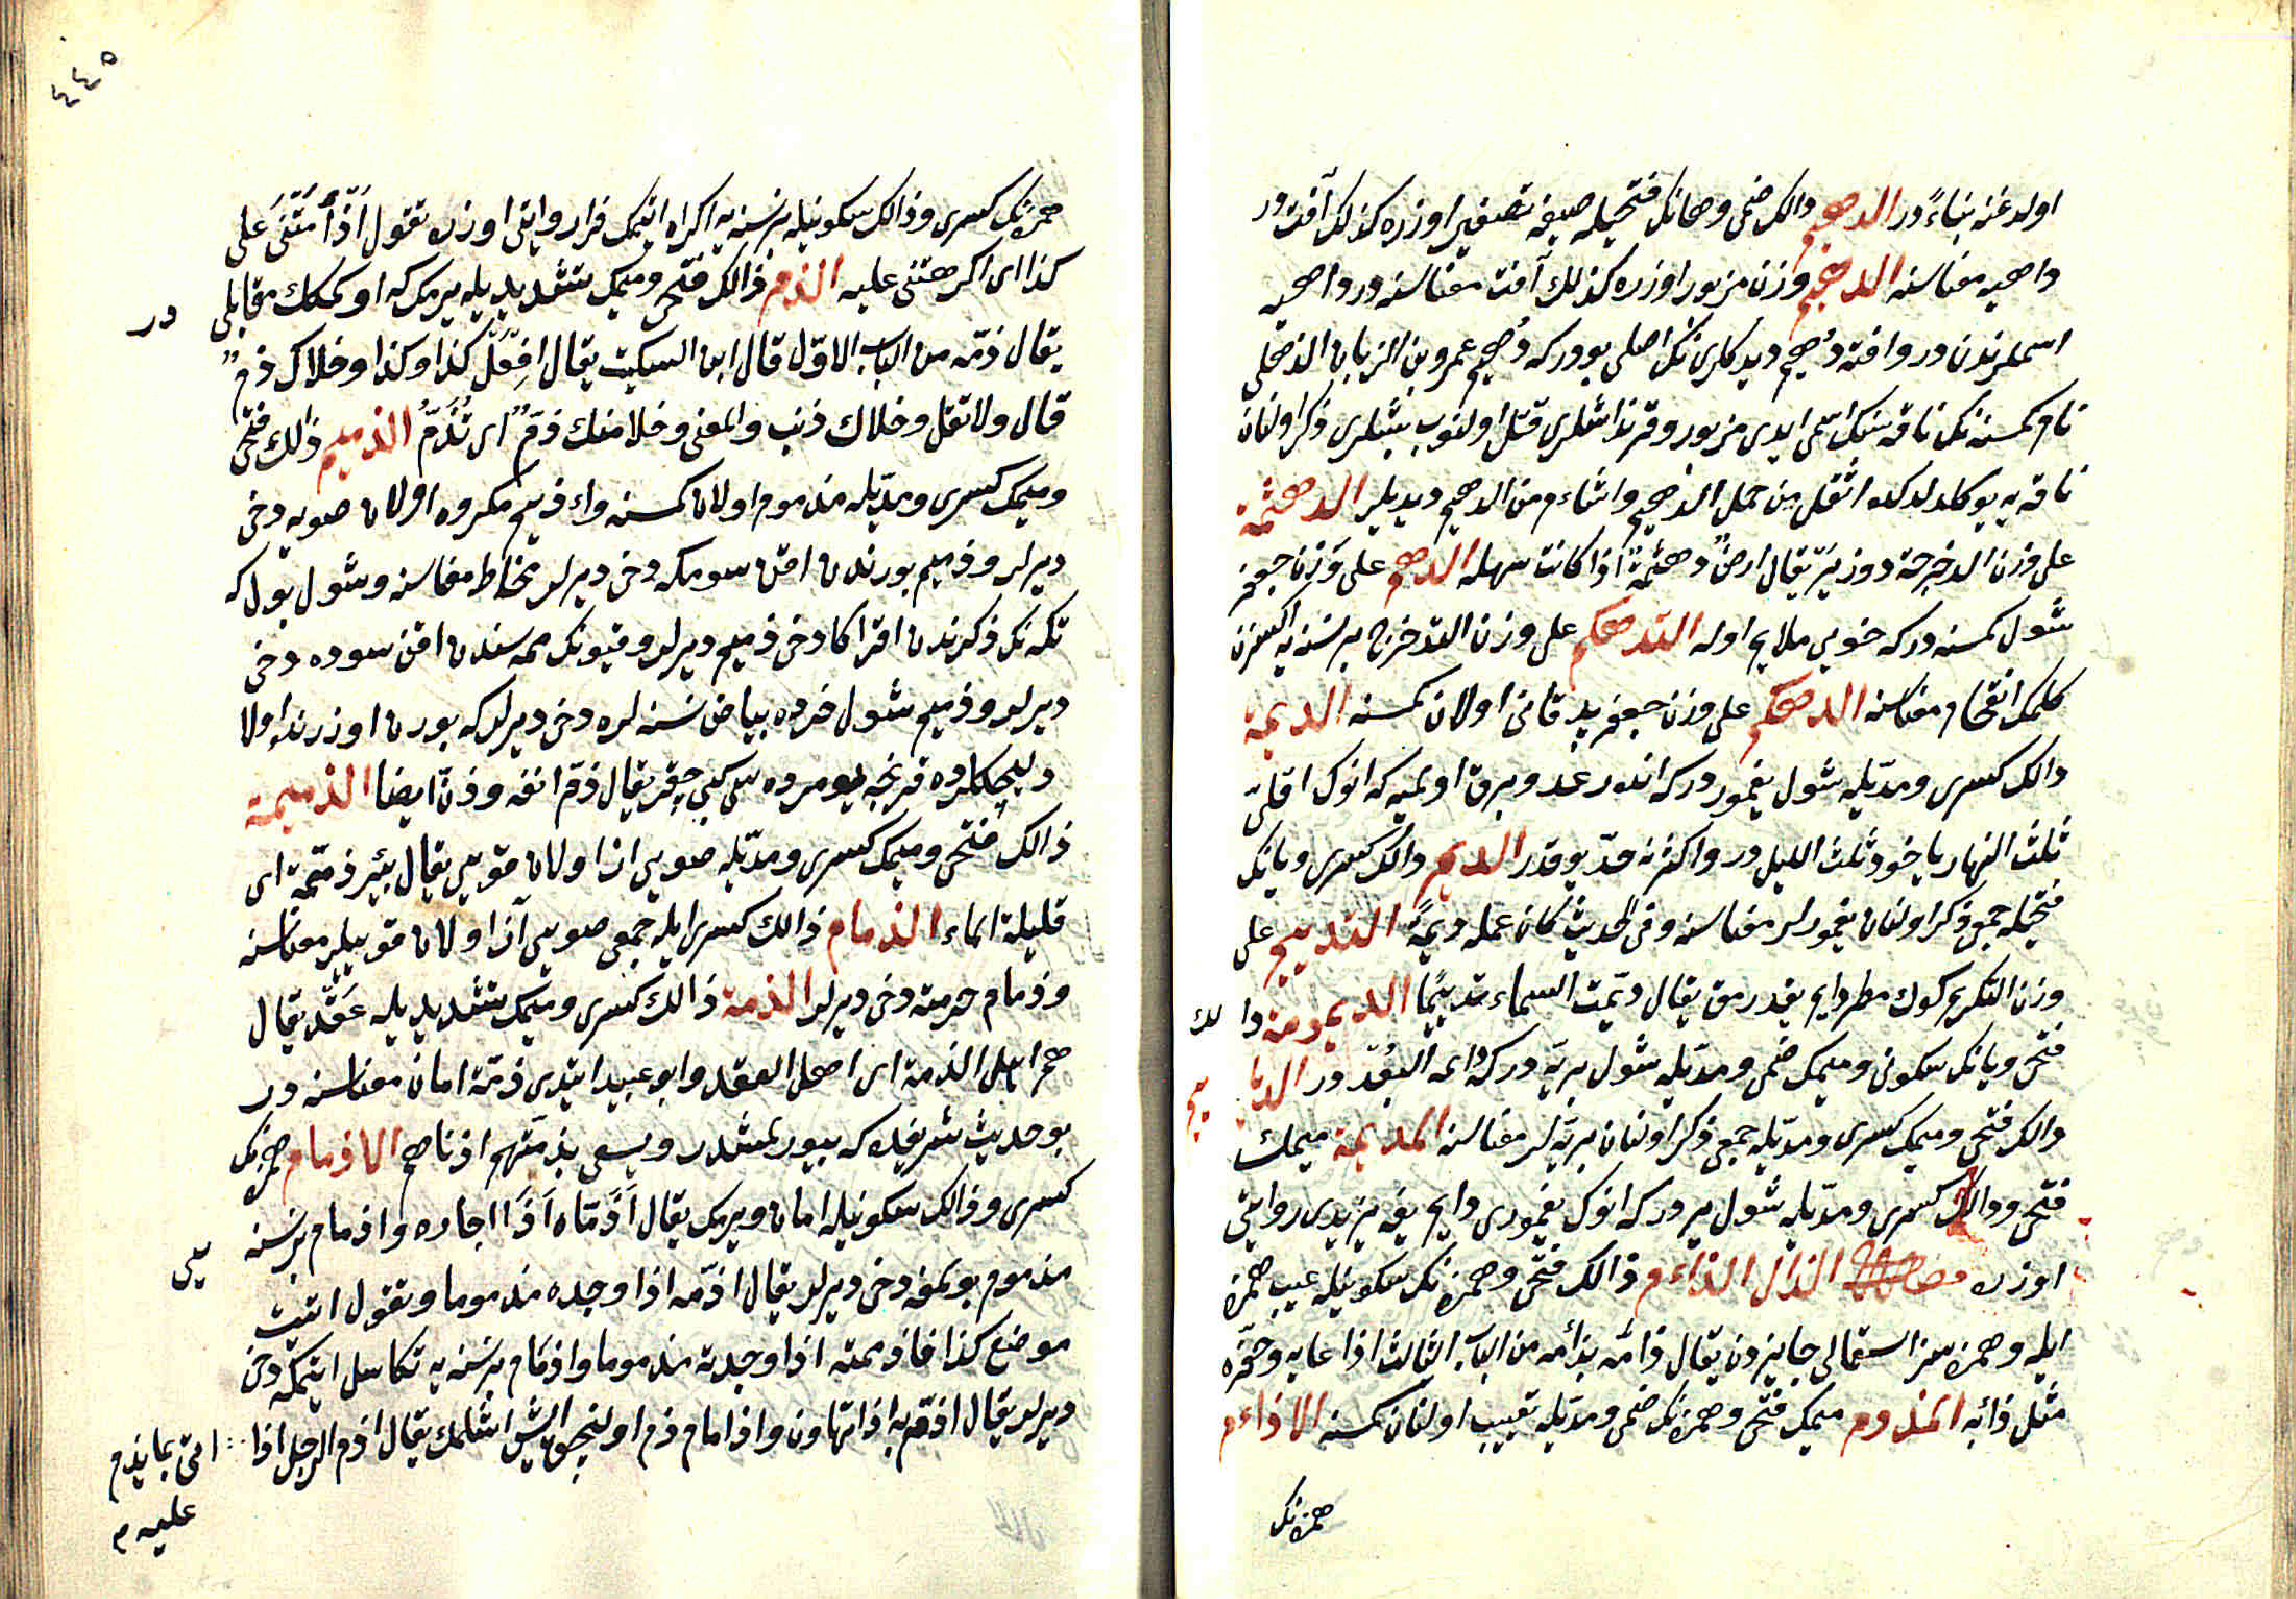 اولدغنه بناءً در الدهیم دالك ضمی وهانك فتحیله صیغهٔ تصغیر اوزره كذلك آفت در
داهیه معناسنه الدهیم وزن مزبور اوزره كذلك آفت معناسنه در داهیه
اسملرندن در وافته دُهیم دیدكلرینك اصلی بودركه دُهیم عمرو بن الزبان الذهلی
نام كمسنه نك ناقه سنك اسمی ایدی مزبور وقرنداشلری قتل اولنوب باشلری ذكر اولنان
ناقه یه یوكلدلدكده اثقل من حمل الدهیم واشاءم من الدهیم دیدیلر الدهثمة
علی وزن الدحرجة دوز یر یقال ارضٌ دهثمةٌ اذا كانت سهلة الدهثم علی وزن جعفر
شول كمسنه دركه خویی ملایم اوله التدهكم علی وزن التدحرج بر نسنه یه اكسزن
كلمك اقتحام معناسنه الدهكم علی وزن جعفر پیر فانی اولان كمسنه الدیمة
دالك كسری ومدّیله شول یغمور دركه انده رعد وبرق اولمیه كه انوك اقلّی
ثلث النهار یاخود ثلث اللیل در واكثرنه حدّ یوقدر الدیم دالك كسری ویانك
فتحیله جمعی ذكر اولنان یغمورلر معناسنه وفی الحدیث كان عمله دیمةً التدییم علی
وزن التكریم كوك مطر دایم یغدرمق یقال دیّمت السماء تدییمًا الدیمومة دالك
فتحی ویانك سكونی ومیمك ضمی ومدّیله شول بریّه دركه دائمة البُعد در الدیامیم
دالك فتحی ومیمك كسری ومدّیله جمعی ذكر اولنان بریّه لر معناسنه المدیمة میمك
فتحی ودالك كسری ومدّیله شول یر دركه انوك یغموری دایم یغه یزیدی روایتی
اوزره فصل الذال الذاءم ذالك فتحی وهمزنك سكونیله عیب همزه
ایله وهمزه سز استعمالی جایزدن یقال ذاَمَه یذاَمه من الباب الثالث اذا عابه وحقّره
مثل ذائبه المذؤم میمك فتحی وهمزنك ضمی ومدّیله تعییب اولنان كمسنه الاذاءم
همزنك
٤٤٥
همزنك كسری وذالك سكونیله بر نسنه یه اكراه اتیمك فرار روایتی اوزره تقول اَذْأَمْتَنی علی
كذا ای اكرهتنی علیه الذم ذالك فتحی ومیمك تشدیدیله یرمك كه اوكمكك مقابلی در
یقال ذمّه من الباب الاوّل قال ابن السكیت یقال افعَلْ كذا وكذا وخلاك ذمٌّ
قال ولا تقل وخلاك ذنب والمعنی وخلا منك ذمٌّ ای تُذَمُّ الذمیم ذالك فتحی
ومیمك كسری ومدّیله مذموم اولان كمسنه وماء ذمیم مكروه اولان صویه دخی
دیرلر وذمیم بورندن اقن سومكه دخی دیرلر مخاط معناسنه وشول بول كه
تكه نك ذكرندن اقر اكا دخی ذمیم دیرلر وقیونك ممه سندن اقن سوده دخی
دیرلر وذمیم شول خرده بیاض نسنه لره دخی دیرلر كه بورن اوزرنده اولا
دلیجكلرده قرنجه یومرده سی كبی چیقر یقال ذمّ انفه وذنّ ایضا الذمیمة
ذالك فتحی ومیمك كسری ومدّیله صویی از اولان قویی یقال بئر ذمیمة ای
قلیلة الماء الذمام ذالك كسری ایله جمعی صویی آز اولان قوییلر معناسنه
وذمام حرمته دخی دیرلر الذمة ذالك كسری ومیمك تشدیدیله عَقْد یقال
هم اهل الذمة ای اهل العقد وابو عبید ایتدی ذمّة امان معناسنه در
بو حدیث شریفده كه بیورلمشدر ویسعی بذمّتهم ادناهم الاذمام همزنك
كسری وذالك سكونیله امان ویرمك یقال اَذَمّه اَذًا اجاره واذمام بر نسنه یی
مذموم بولمغه دخی دیرلر یقال اذمّه اذا وجده مذموما وتقول اتیت
موضع كذا فاذممته اذا وجدته مذموما واذمام بر نسنه یه تكاسل ایتمكه دخی
دیرلر یقال اذمّ به اذا تهاون واذمام ذم اولنجق ایش اشلمك یقال اذم الرجل اذا
اتی بما یذم
علیه م